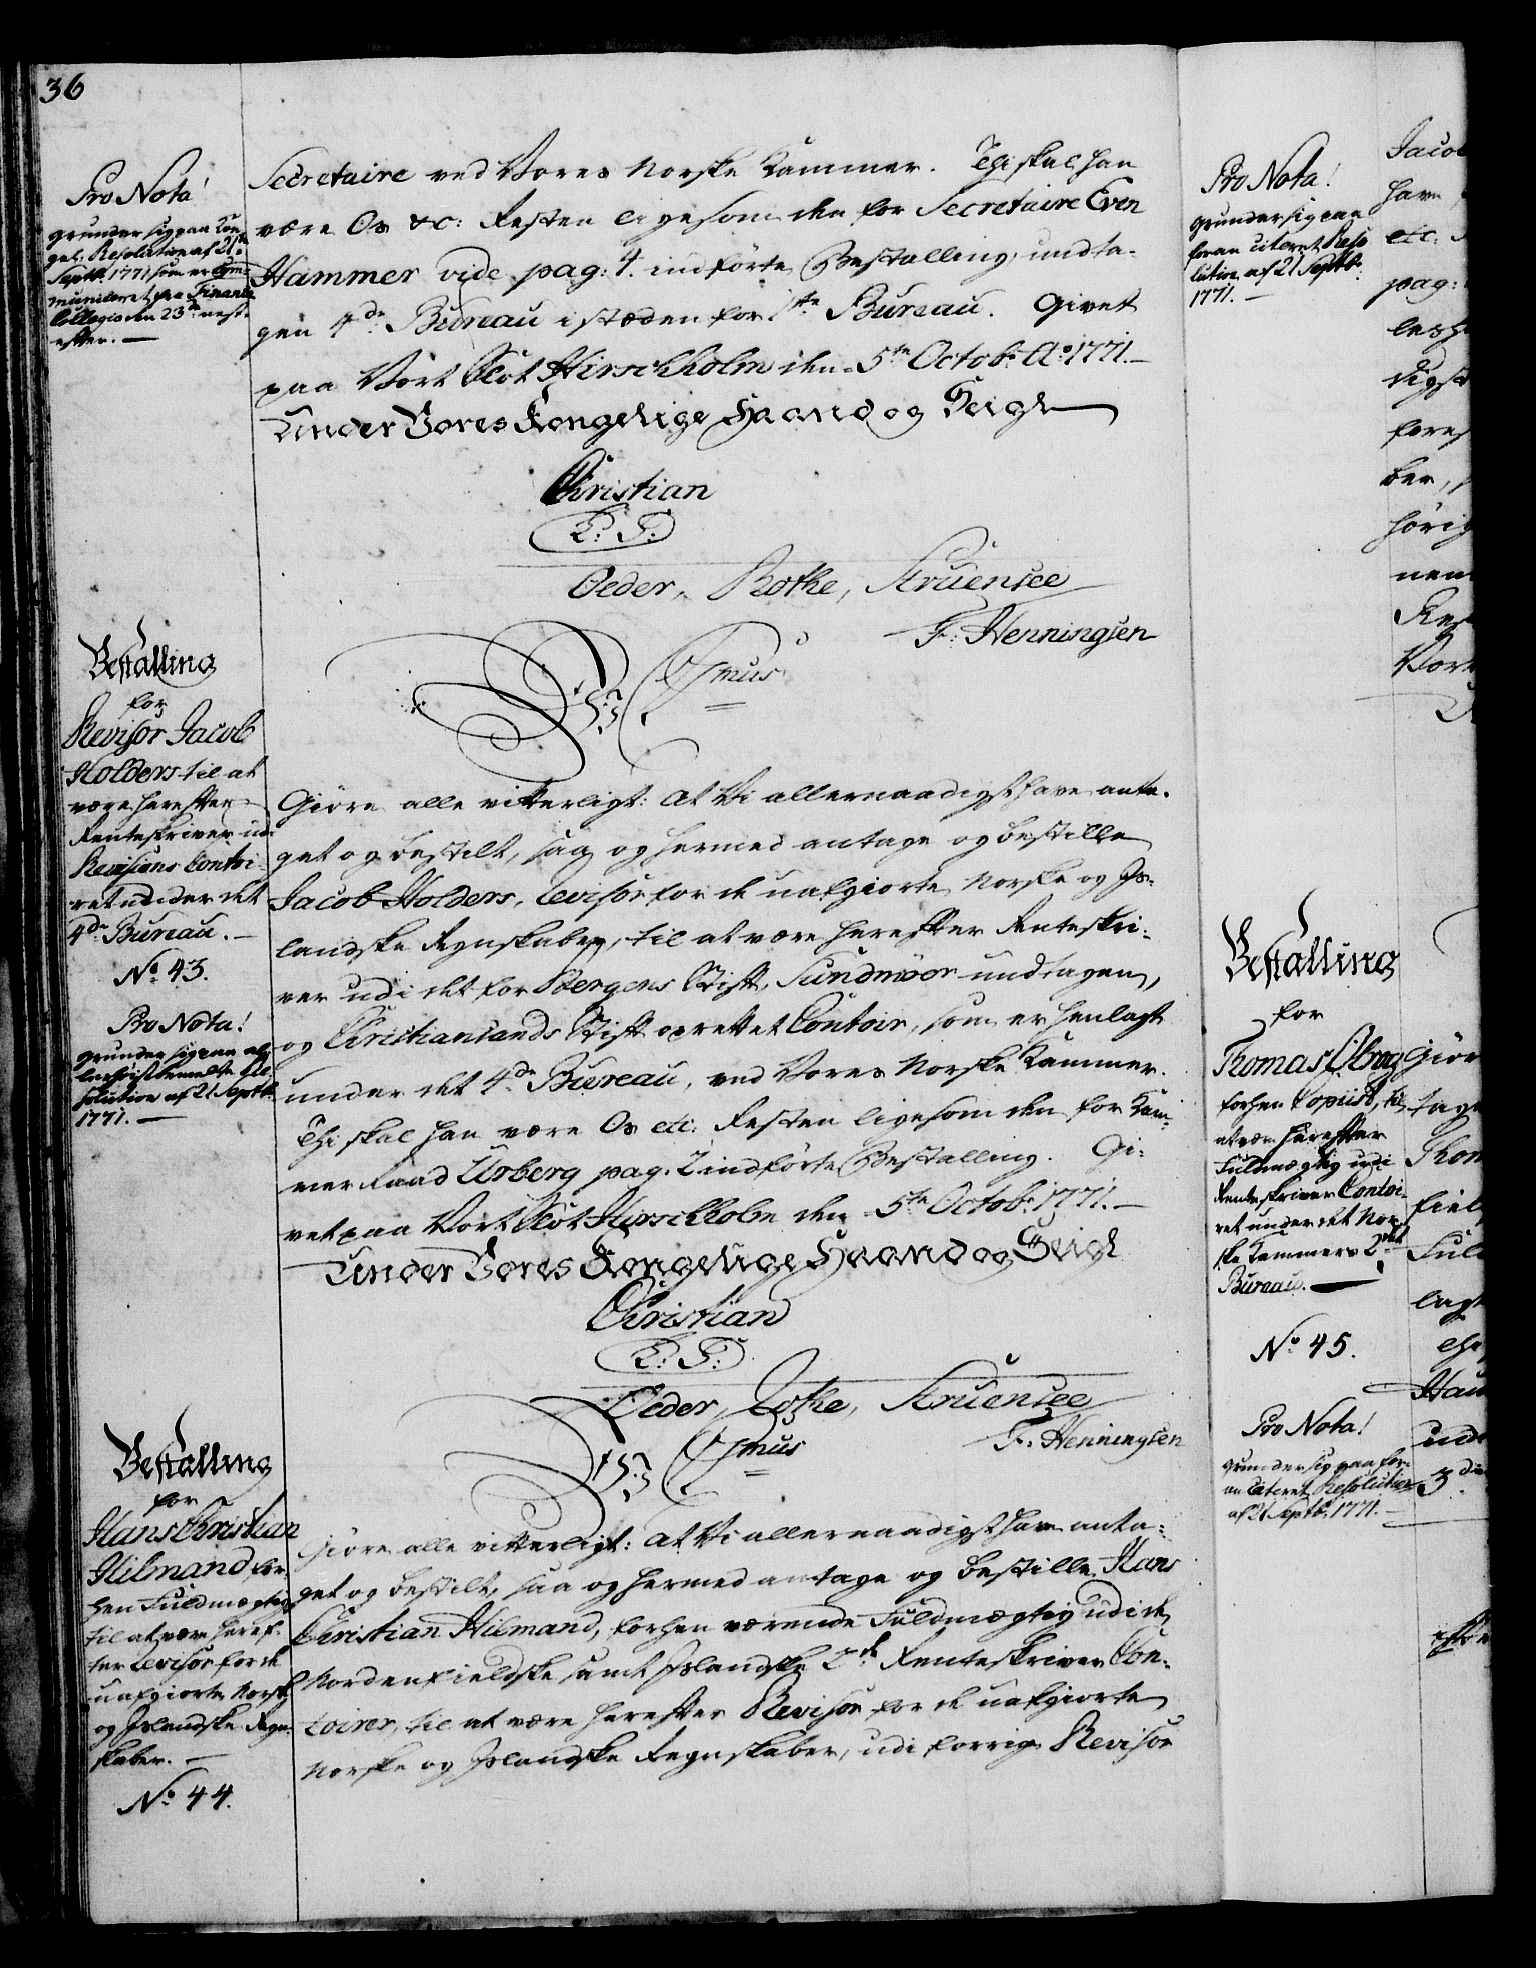 36
Pro Nota!
grunder sig paa Kon-
gel: Resolution af 21de
Septbr 1771 som er com-
municeret fra Finance
Collegio den 23de næst-
efter. —
Secretaire ved Vores Norske Kammer. Thi skal han
være Os &c: Resten ligesom den for Secretaire Even
Hammer vide pag: 4. indførte Bestalling, undta-
gen 4de Bureau i stæden for 1ste Bureau. Givet
paa Vort Slot Hirschholm den 5te Octobr Ao 1771. —
Under Vores Kongelige Haand og Seigl
Christian
L: S:
Oeder, Rothe, Struensee
F: Henningsen
Bestalling
for
Revisor Jacob
Holders til at
være herefter
Renteskriver udi
Revisions Contoi-
ret under det
4de Bureau. —
No 43.
Pro Nota!
grunder sig paa al-
lerhøistbemeldte Re-
solution af 21 Septbr
1771. —
Vi Chr: 7. Osmus
Giøre alle vitterligt: At Vi allernaadigst have anta-
get og bestilt, saa og hermed antage og bestille
Jacob Holders, Revisor for de uafgiorte Norske og Is-
landske Regnskaber, til at være herefter Renteskri-
ver udi det for Bergens Stift, Sundmöer undtagen,
og Christiansands Stift oprettet Contoir, som er henlagt
under det 4de Bureau, ved Vores Norske Kammer.
Thi skal han være Os etc: Resten ligesom den for Kam-
mer Raad Urberg pag: 2 indførte Bestalling. Gi-
vet paa Vort Slot Hirschholm den 5te Octobr 1771. —
Under Vores Kongelige Haand og Seigl
Christian
L: S:
Oeder, Rothe, Struensee
F: Henningsen
Bestalling
for
Hans Christian
Hilmand for-
hen Fuldmægtig
til at være heref-
ter Revisor for de
uafgiorte Norske
og Islandske Regn-
skaber. —
No 44.
Giøre alle vitterligt: At Vi allernaadigst have anta-
get og bestilt, saa og hermed antage og bestille Hans
Christian Hilmand, forhen værende Fuldmægtig udi det
Nordenfieldske samt Islandske 2de Renteskriver Con-
toirer, til at være herefter Revisor for de uafgiorte
Norske og Islandske Regnskaber, udi forrige Revisor
Pro Nota!
grunder sig paa
foran citeret Reso-
lution af 21 Septbr
1771. —
Bestalling
for
Thomas Obrog
forhen Copiist, til
at være herefter
Fuldmægtig udi
Renteskriver Contoi-
ret under det Nor-
ske Kammers 2det
Bureau. —
No 45.
Pro Nota!
grunder sig paa for-
an citeret Resolution
af 21 Septbr 1771. —
Jacob
have
etc:
pag:
ber,
hørig
nem
Vort
Giør
tage
Thom
Fuld
lagt
Thi
udi
3die